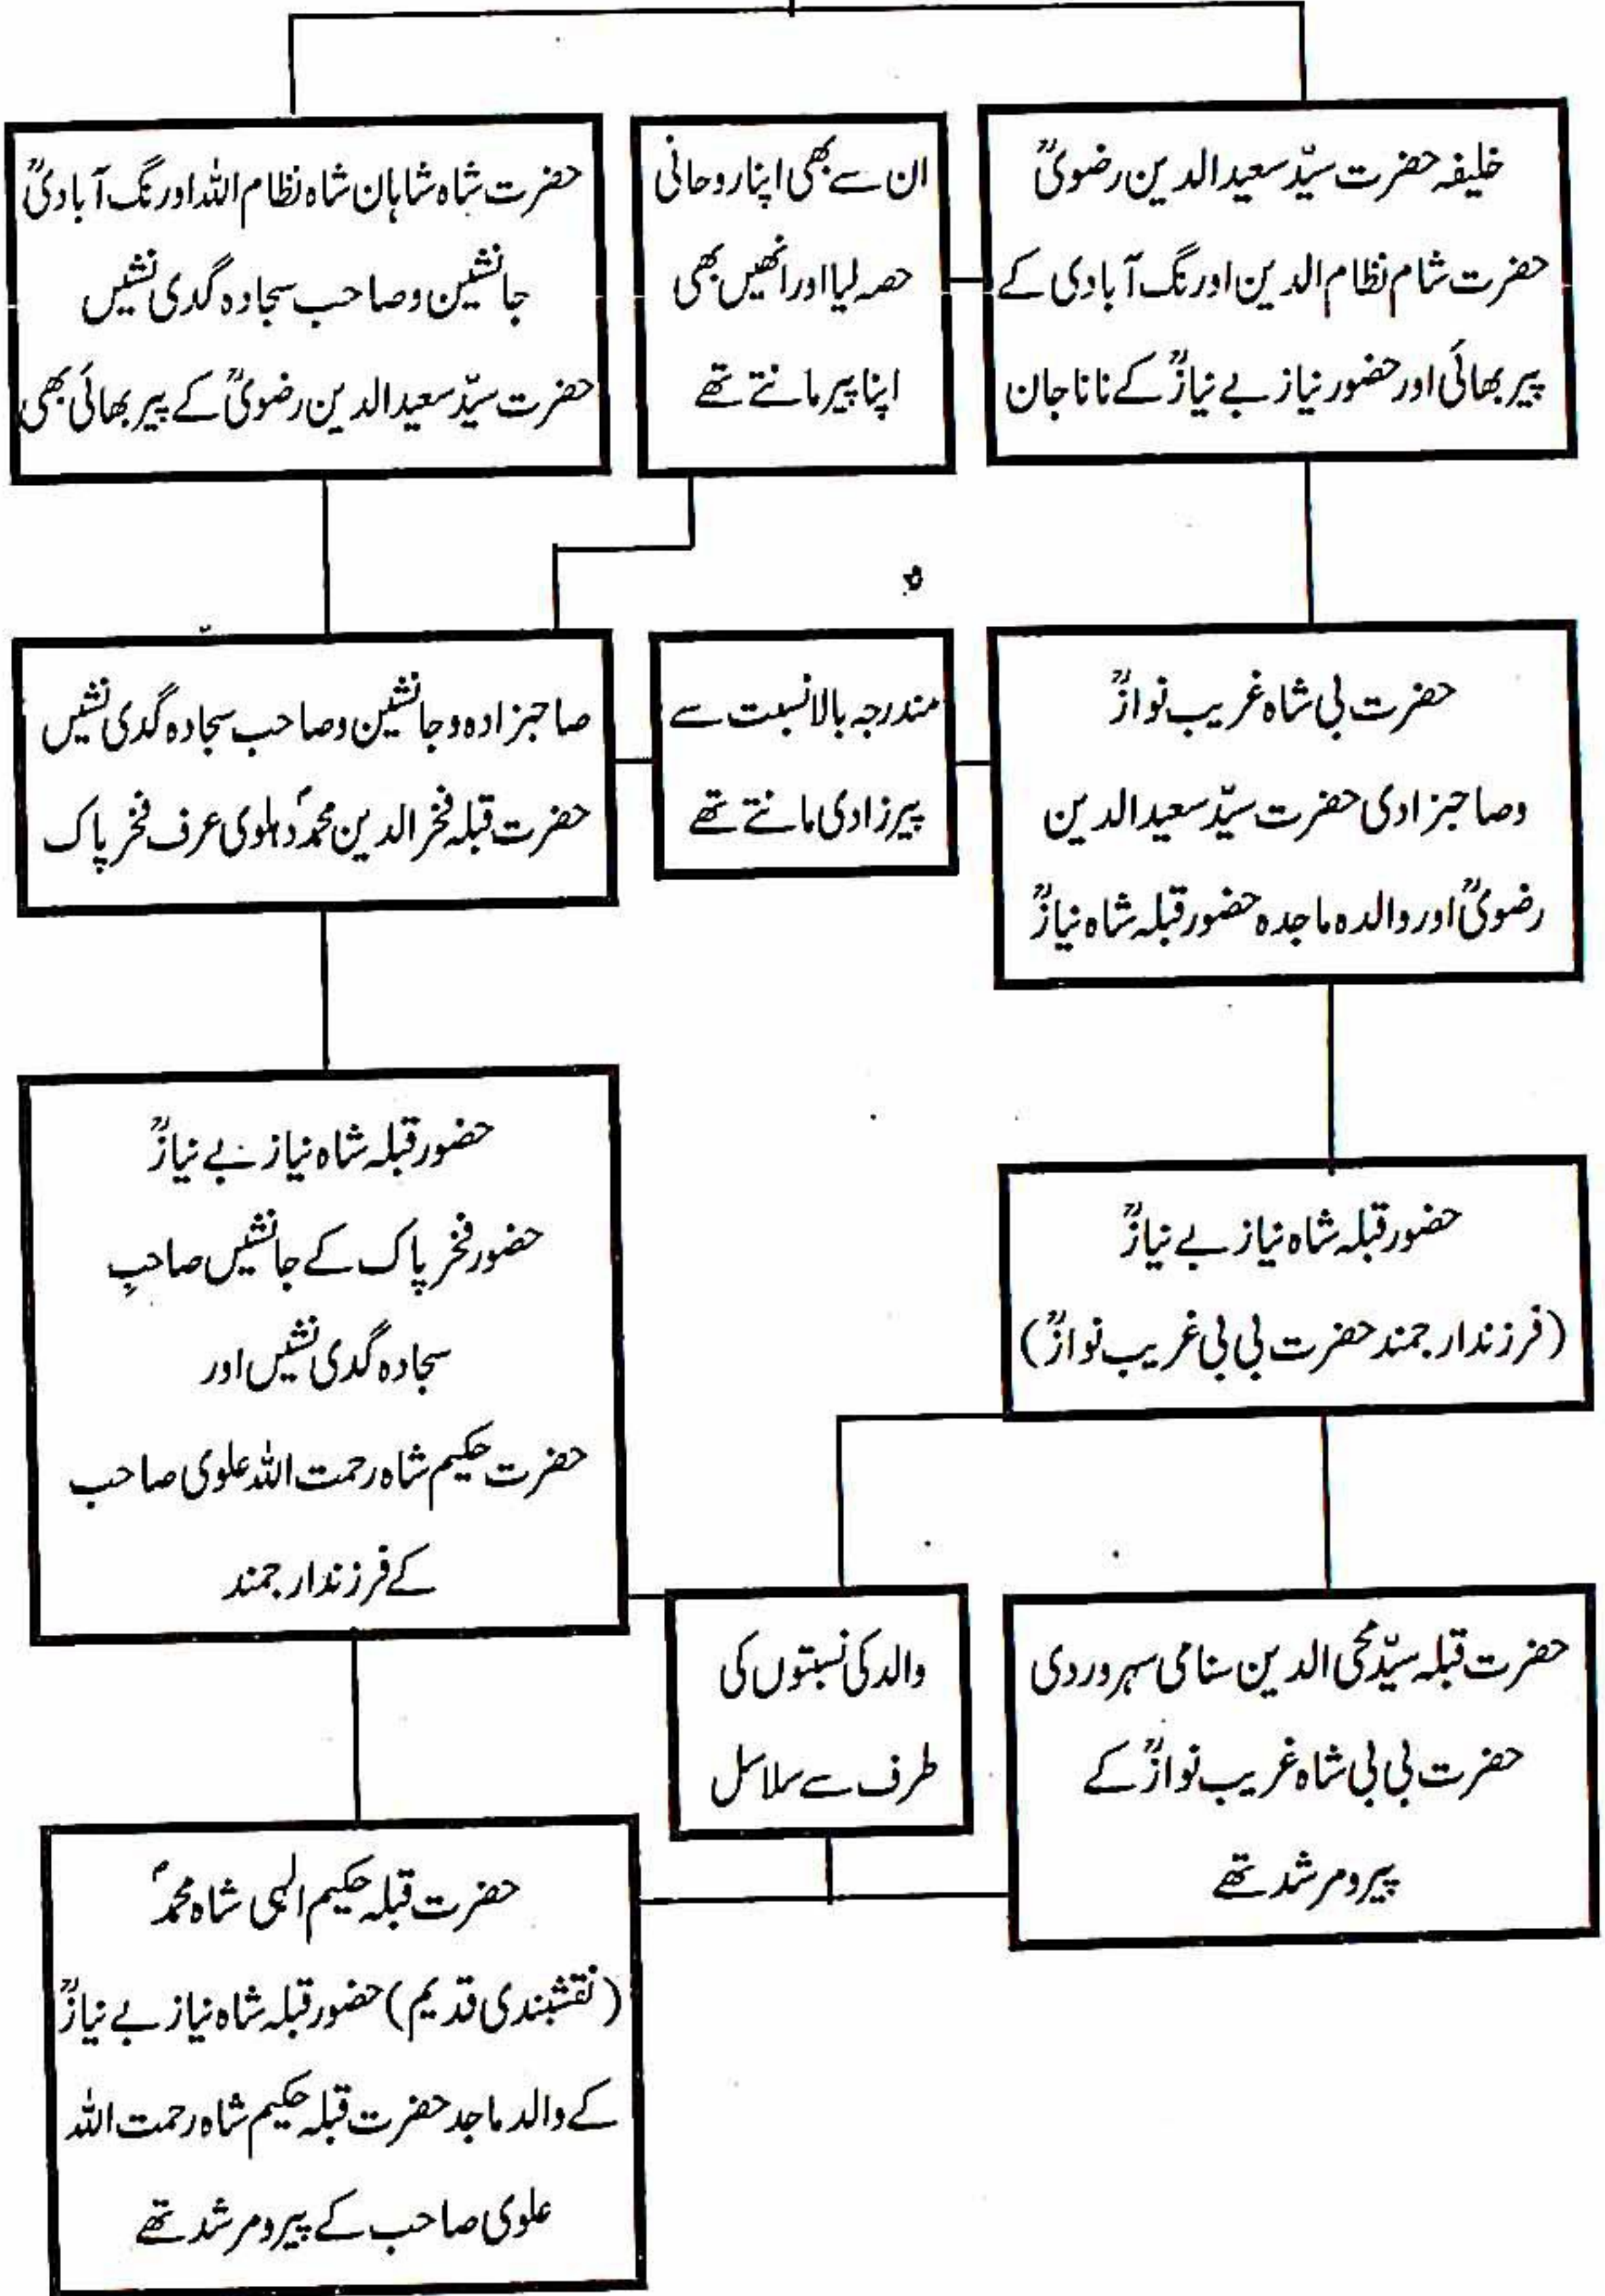 خلیفہ حضرت سیّد سعید الدین رضویؒ
حضرت شام نظام الدین اورنگ آبادی کے
پیر بھائی اور حضور نیاز بے نیازؒ کے نانا جان
ان سے بھی اپنا روحانی
حصہ لیا اور انھیں بھی
اپنا پیر مانتے تھے
حضرت شاہ شاہان شاہ نظام اللہ اورنگ آبادیؒ
جانشین و صاحب سجادہ گدی نشیں
حضرت سیّد سعید الدین رضویؒ کے پیر بھائی بھی
حضرت بی شاہ غریب نوازؒ
وصاحبزادی حضرت سیّد سعید الدین
رضویؒ اور والدہ ماجدہ حضور قبلہ شاہ نیازؒ
مندرجہ بالا نسبت سے
پیرزادی مانتے تھے
صاحبزادہ و جانشین و صاحب سجادہ گدی نشیں
حضرت قبلہ فخر الدین محمدؐ دہلوی عرف فخر پاک
حضور قبلہ شاہ نیاز بے نیازؒ
(فرزند ارجمند حضرت بی بی غریب نوازؒ)
حضور قبلہ شاہ نیاز بے نیازؒ
حضور فخر پاک کے جانشیں صاحبِ
سجادہ گدی نشیں اور
حضرت حکیم شاہ رحمت اللہ علوی صاحب
کے فرزند ارجمند
حضرت قبلہ سیّد محی الدین سنامی سہروردی
حضرت بی بی شاہ غریب نوازؒ کے
پیر و مرشد تھے
والد کی نسبتوں کی
طرف سے سلاسل
حضرت قبلہ حکیم الہی شاہ محمدؐ
(نقشبندی قدیم) حضور قبلہ شاہ نیاز بے نیازؒ
کے والد ماجد حضرت قبلہ حکیم شاہ رحمت اللہ
علوی صاحب کے پیر و مرشد تھے